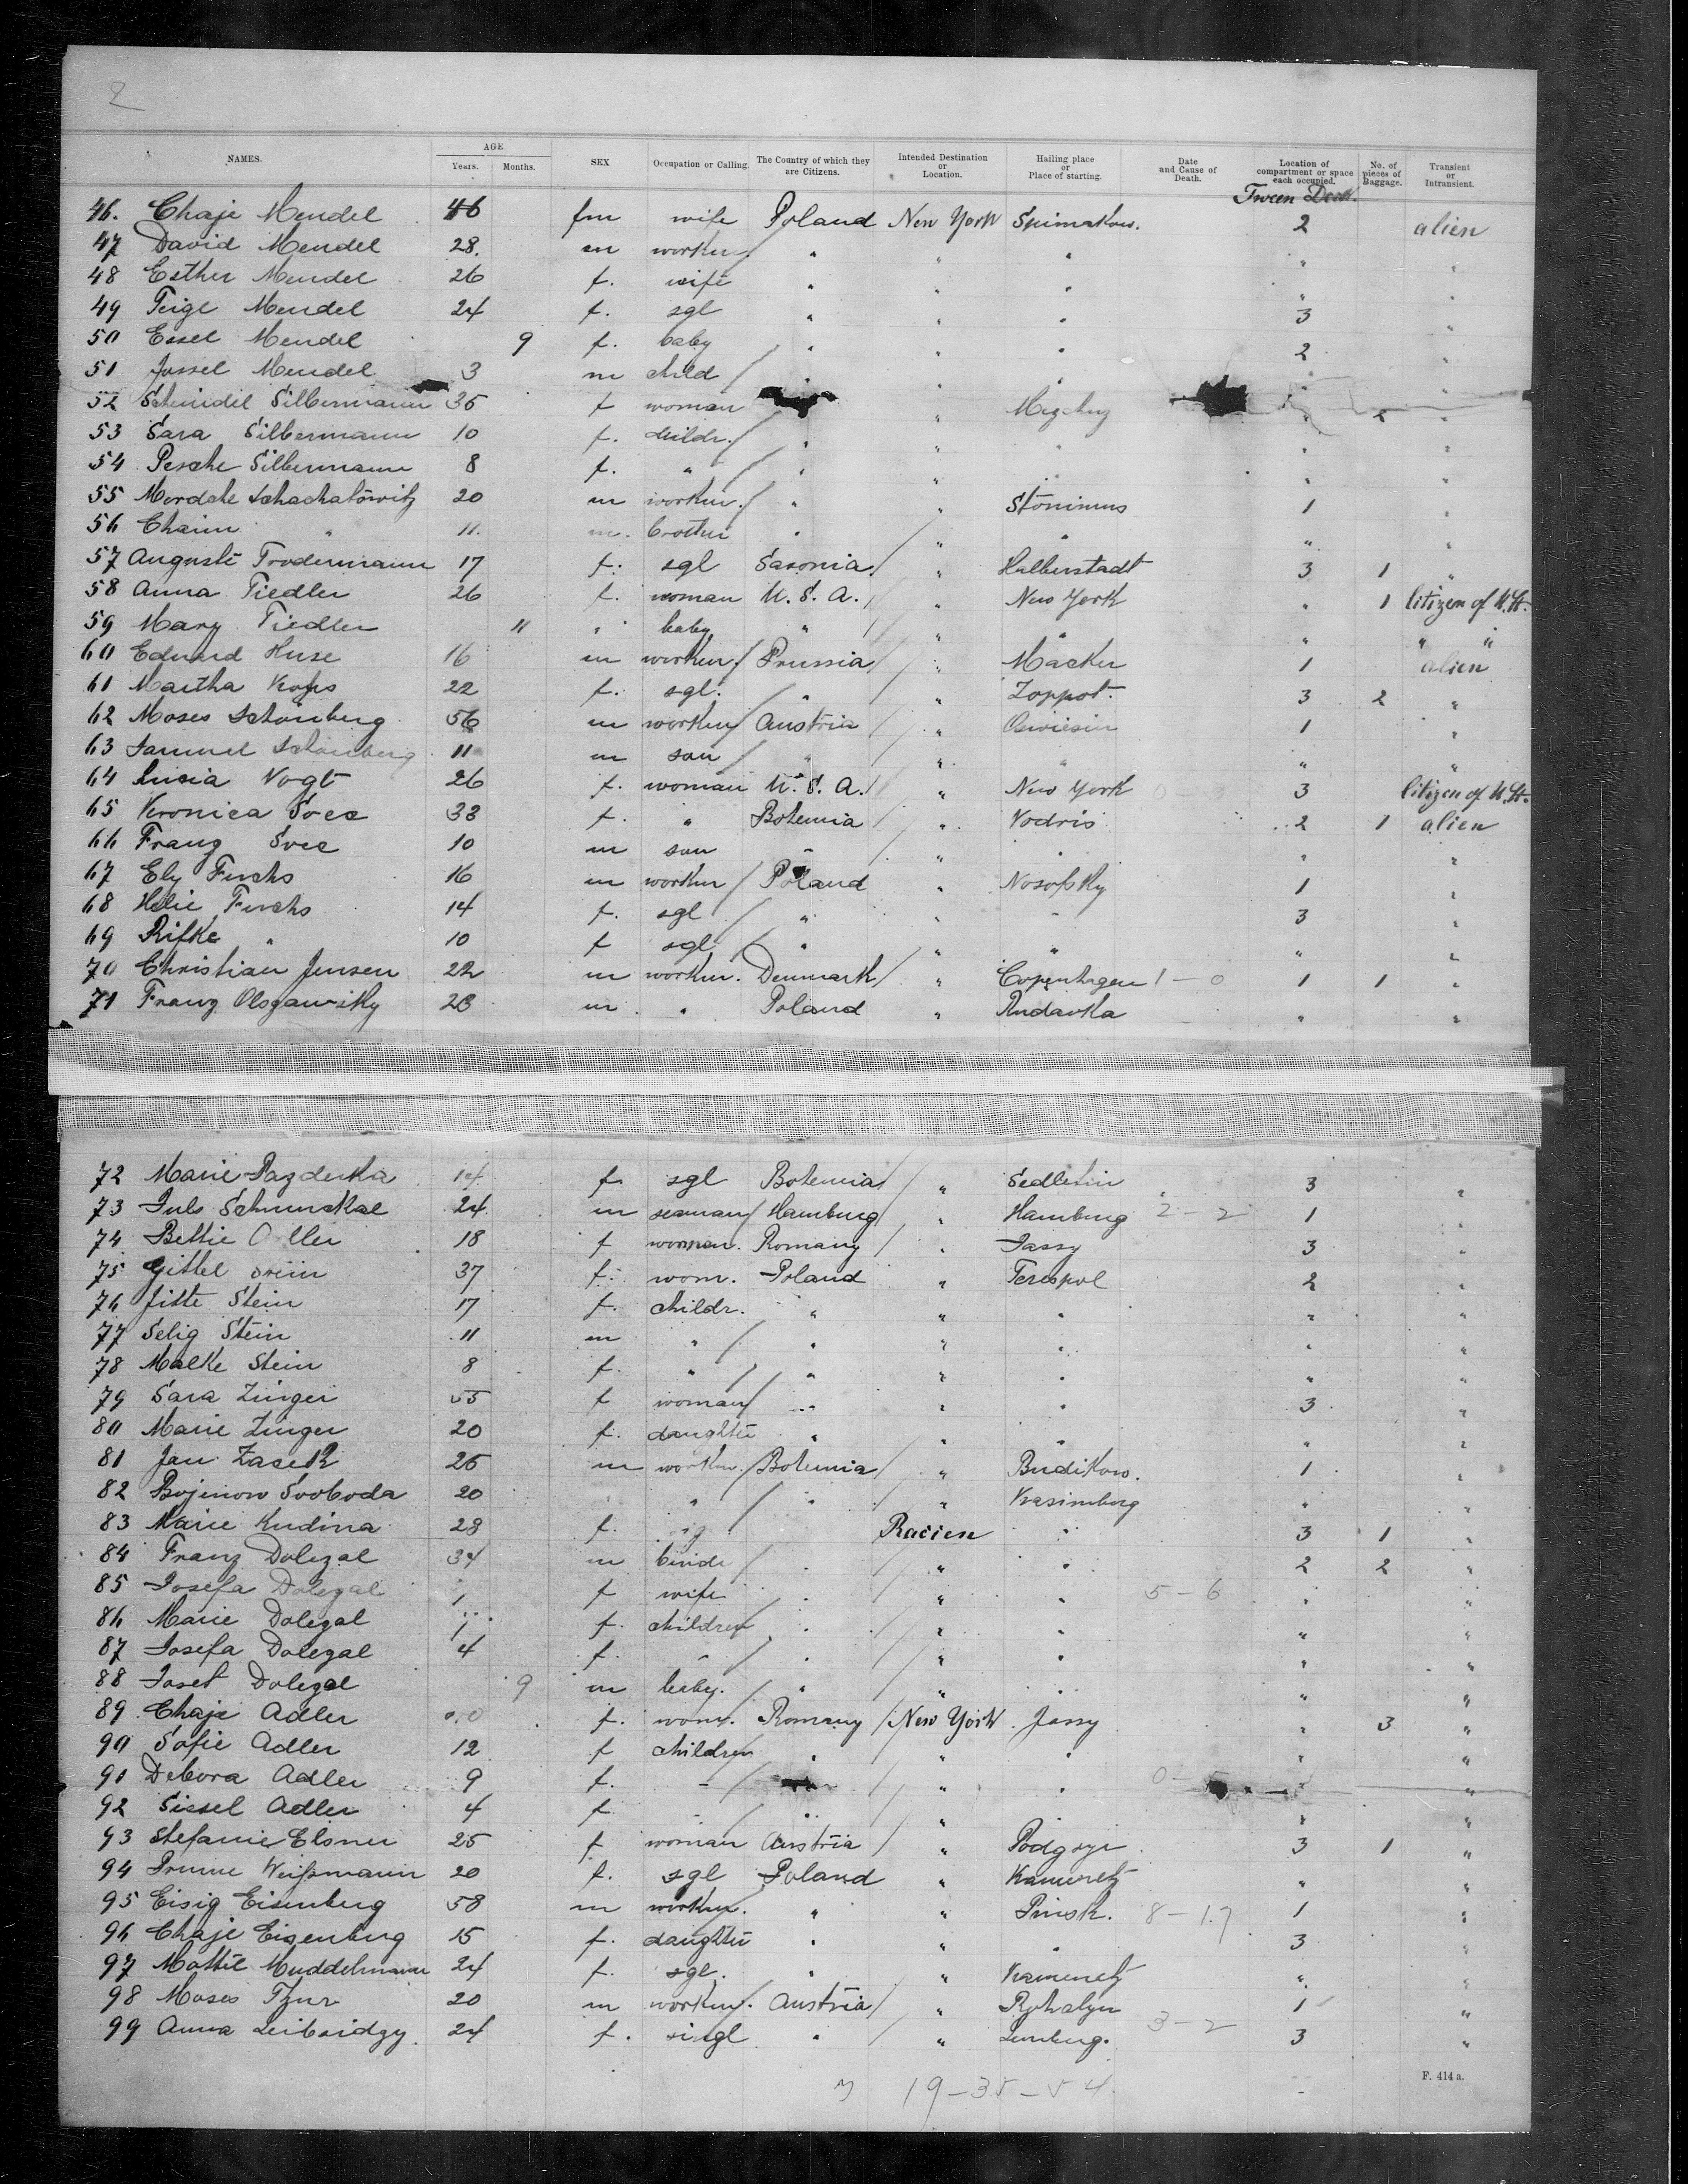 2
NAMES. AGE Years. Months. SEX Occupation or Calling. The Country of which they are Citizens. Intended Destination or Location. Hailing place or Place of starting. Date and Cause of Death. Location of compartment or space each occupied. No. of pieces of Baggage. Transient or Intransient.
Tween Deck.
46. Chaje Mendel 46 fm wife Poland New York 2 alien
47 David Mendel 28. m workm " " " " "
48 Esther Mendel 26 f. wife " " " " "
49 Feige Mendel 24 f. sgl " " " 3 "
50 Essel Mendel 9 f. baby " " " 2 "
51 Jossel Mendel 3 m child " " " " "
52 Scheindel Silbermann 35 f woman " " 2 "
53 Sara Silbermann 10 f. childr. " " " " "
54 Pesche Silbermann 8 f. " " " " " "
55 Mordche Schachatowitz 20 m workm. " " Stonimus 1 "
56 Chaim " 11. m. brother " " " " "
57 Auguste Trodermann 17 f. sgl Saxonia " Halberstadt 3 1 "
58 Anna Tiedler 26 f. woman U. S. A. " New York " 1 Citizen of U. St.
59 Mary Tiedler 11 " baby " " " " " "
60 Eduard Huse 16 m workm. Prussia " Mäcker 1 alien
61 Martha Krohs 22 f. sgl. " " Zoppot. 3 2 "
62 Moses Schönberg 56 m workm Austria " Oswiesin 1 "
63 Samuel Schönberg 11 m son " " " " "
64 Lucia Vogt 26 f. woman U. S. A. " New York 3 Citizen of U. St.
65 Veronica Svec 33 f. " Bohemia " Vodris 2 1 alien
66 Franz Svec 10 m son " " " " "
67 Ely Fuchs 16 m workm Poland " Nosofsky 1 "
68 Helie Fuchs 14 f. sgl " " " 3 "
69 Rifke " 10 f sgl " " " " "
70 Christian Jensen 22 m workm. Denmark " Copenhagen 1 - 0 1 1 "
71 Franz Olsgawsky 23 m " Poland " Rudavka " "
72 Marie Pazderka 14 f. sgl Bohemia " Sedletin 3 "
73 Juls Schmuckal 24 m seaman Hamburg " Hamburg 2 - 2 1 "
74 Bettie 18 f woman. Romany " Jassy 3 "
75 Gittel 37 f. wom. Poland " Terespol 2 "
76 Jitte Stein 17 f. childr. " " " " "
77 Selig Stein 11 m " " " " " "
78 Malke Stein 8 f. " " " " " "
79 Sara Zinger 55 f woman " " " 3 "
80 Marie Zinger 20 f. daughter " " " " "
81 Jan Zasek 25 m workm. Bohemia " Budikow. 1 "
82 Bojinow Svoboda 20 " " " Krasinberg " "
83 Marie Kudina 28 f. Racien " 3 1 "
84 Franz Dolezal 34 m " " " 2 2 "
85 Josefa Dolezal f wife " " " 5 - 6 " "
86 Marie Dolezal f. children " " " " "
87 Josefa Dolezal 4 f. " " " " " "
88 Josef Dolezal 9 m baby. " " " " "
89 Chaje Adler f. wom. Romany New York Jassy " 3 "
90 Sofie Adler 12 f children " " " " "
91 Debora Adler 9 f. " " " " "
92 Sissel Adler 4 f " " " " "
93 Stefanie Elsner 25 f woman Austria " Podgorje 3 1 "
94 Weißmann 20 f. sgl Poland " Kamenetz " "
95 Eisig Eisenberg 58 m workm. " " Pinsk. 8 - 17 1 "
96 Chaje Eisenberg 15 f. daughter " " " 3 "
97 Mottie Muddelmann 24 f. sgl. " " Kamenetz " "
98 Moses Tzur 20 m workm. Austria " Rohatyn 1 "
99 Anna Leibsidzy 24 f. singl " " Lemberg. 3 - 2 3 "
19 - 35 - 54
F. 414 a.